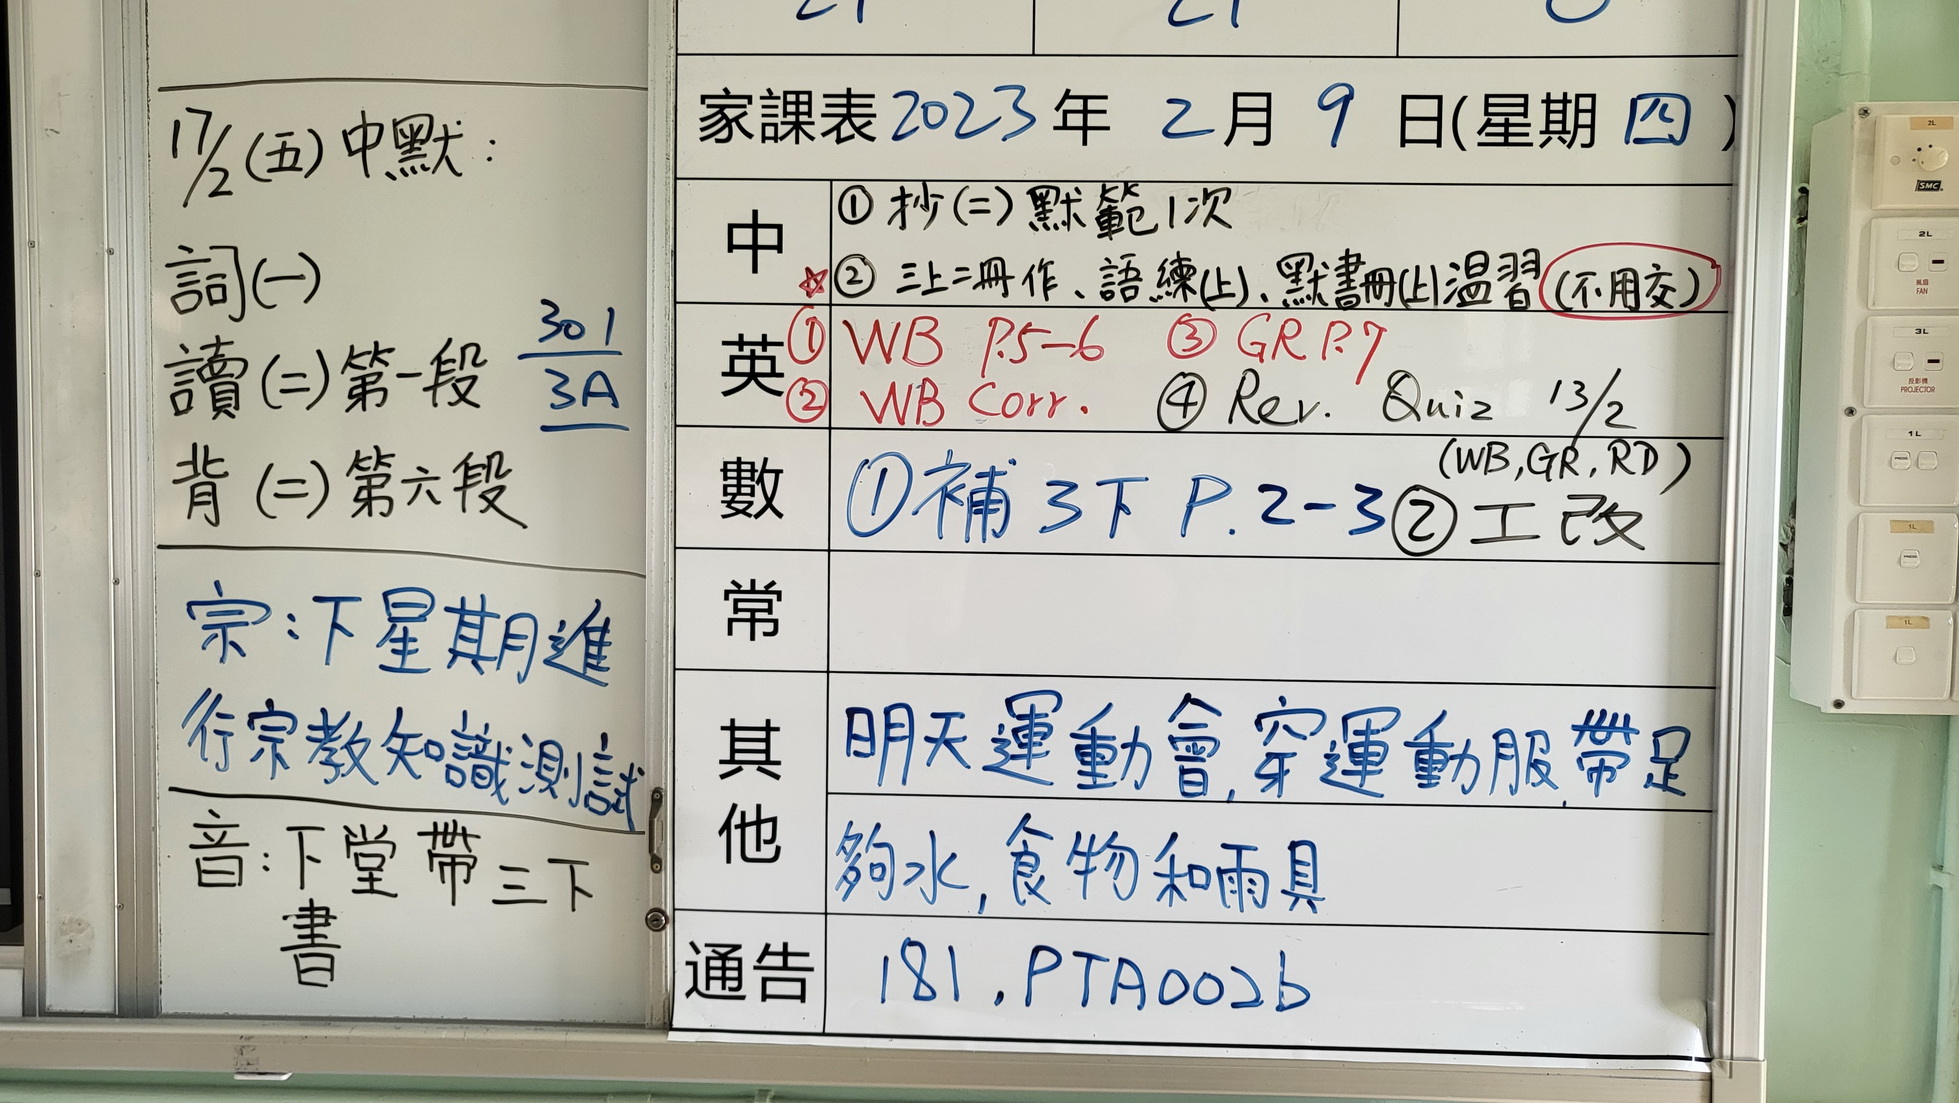 17/2(五)中默:
詞(一)
讀(二)第一段
背(二)第六段
301
3A
宗:下星期進
行宗教知識測試
音:下堂帶三下
書
21 21 0
家課表2023年2月9日(星期四)
中
①抄(二)默範1次
☆②三上二冊作、語練(上)、默書冊(上)温習(不用交)
英
①WB P.5-6 ③GR P.7
②WB Corr. ④Rev. Quiz 13/2
(WB,GR,RD)
數
①補3下P.2-3②工改
常
其他
明天運動會,穿運動服,帶足
夠水,食物和雨具
通告
181,PTA002b
2L
SMC
2L
風扇
FAN
3L
投影機
PROJECTOR
1L
1L
1L